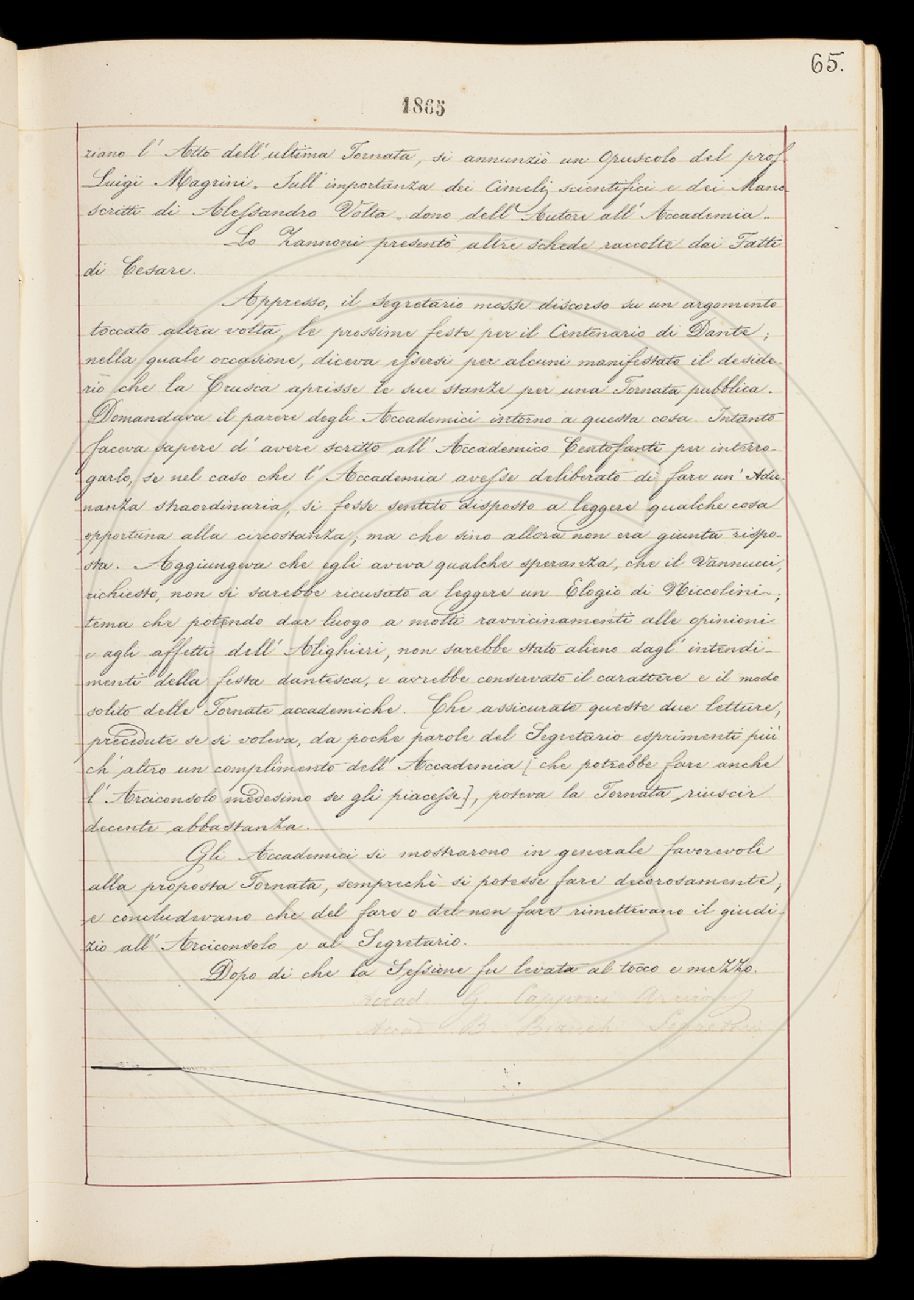 65.
1865
ziano l' Atto dell' ultima Tornata, si annunziò un Opuscolo del prof.
Luigi Magrini. Sull' importanza dei Cimelj scientifici e dei Mano
scritti di Alessandro Volta, dono dell' Autore all' Accademia.
Lo Zannoni presentò altre schede raccolte dai Fatti
di Cesare.
Appresso, il segretario mosse discorso su un argomento
toccato altra volta, le prossime feste per il Centenario di Dante;
nella quale occasione, diceva essersi per alcuni manifestato il deside-
rio che la Crusca aprisse le sue stanze per una Tornata pubblica.
Domandava il parere degli Accademici intorno a questa cosa. Intanto
faceva sapere d' avere scritto all' Accademico Centofanti per interro-
garlo, se nel caso che l' Accademia avesse deliberato di fare un' Adu-
nanza straordinaria, si fosse sentito disposto a leggere qualche cosa
opportuna alla circostanza; ma che sino allora non era giunta rispo-
sta. Aggiungeva che egli aveva qualche speranza, che il Vannucci,
richiesto, non si sarebbe ricusato a leggere un Elogio di Niccolini;
tema che potendo dar luogo a molti ravvicinamenti alle opinioni
e agli affetti dell' Alighieri, non sarebbe stato alieno dagl' intendi-
menti della festa dantesca, e avrebbe conservato il carattere e il modo
solito delle Tornate accademiche. Che assicurate queste due letture,
precedute se si voleva, da poche parole del Segretario esprimenti più
ch' altro un complimento dell' Accademia [che potrebbe fare anche
l' Arciconsolo medesimo se gli piacesse], poteva la Tornata riuscir
decente abbastanza.
Gli Accademici si mostrarono in generale favorevoli
alla proposta Tornata, semprechè si potesse fare decorosamente;
e concludevano che del fare o del non fare rimettevano il giudi-
zio all' Arciconsolo e al Segretario.
Dopo di che la Sessione fu levata al tocco e mezzo.
Accad. G. Capponi
Accad. B. Bianchi Segretario